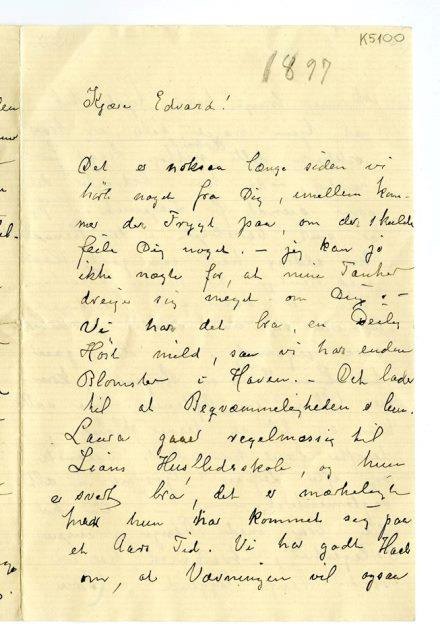 K5100
1897
Kjære Edvard!
Det er noksaa længe siden vi
hørt noget fra Dig, imellem kom-
mer der Frygt paa, om der skulde
feile Dig noget. – jeg kan jo
ikke nægte for, at mine Tanker
dreier sig meget om Dig. –
Vi har det bra, en Deilig
Høst mild, saa vi har endnu
Blomster i Haven. – Det lader
til at Beqvæmmeligheden er
Laura gaar regelmæssig til
Husflidsskole, og hun
er svært bra, det er mærkeligt
hun har kommet sig paa
et Aars Tid. Vi har godt Haab
om, at Vævningen vil ogsaa